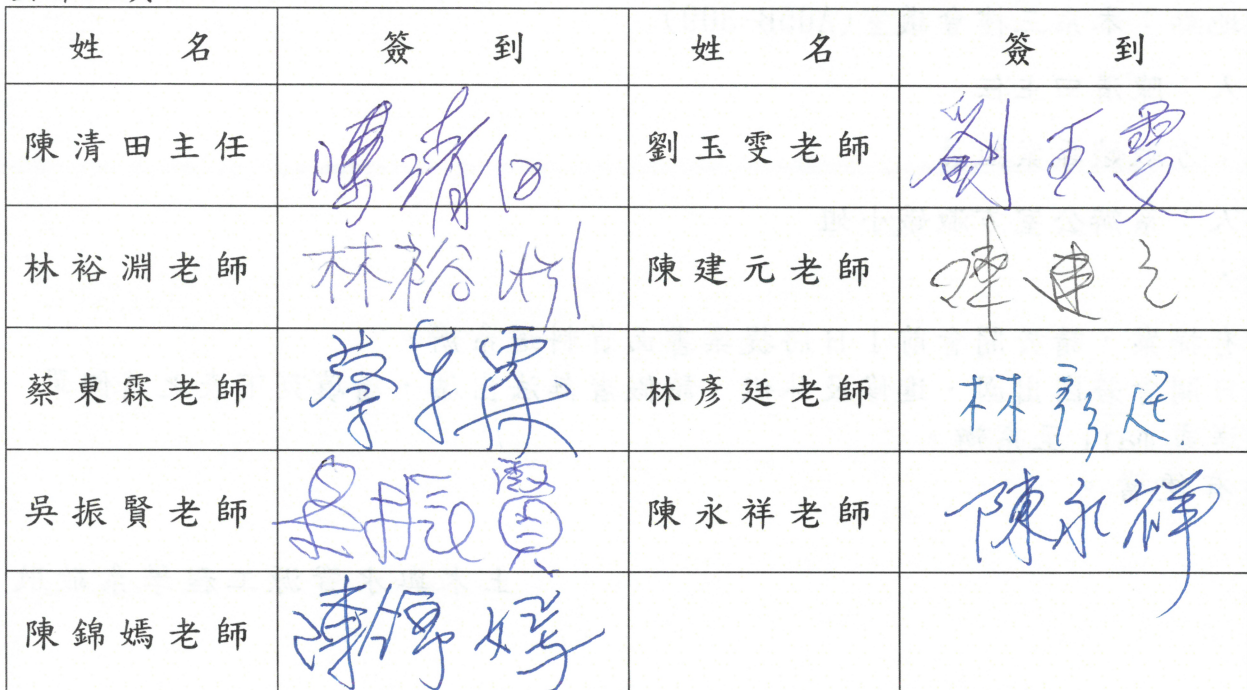 姓名 簽到 姓名 簽到
陳清田主任 陳清田 劉玉雯老師 劉玉雯
林裕淵老師 林裕淵 陳建元老師 陳建元
蔡東霖老師 蔡東霖 林彥廷老師 林彥廷
吳振賢老師 吳振賢 陳永祥老師 陳永祥
陳錦嫣老師 陳錦嫣